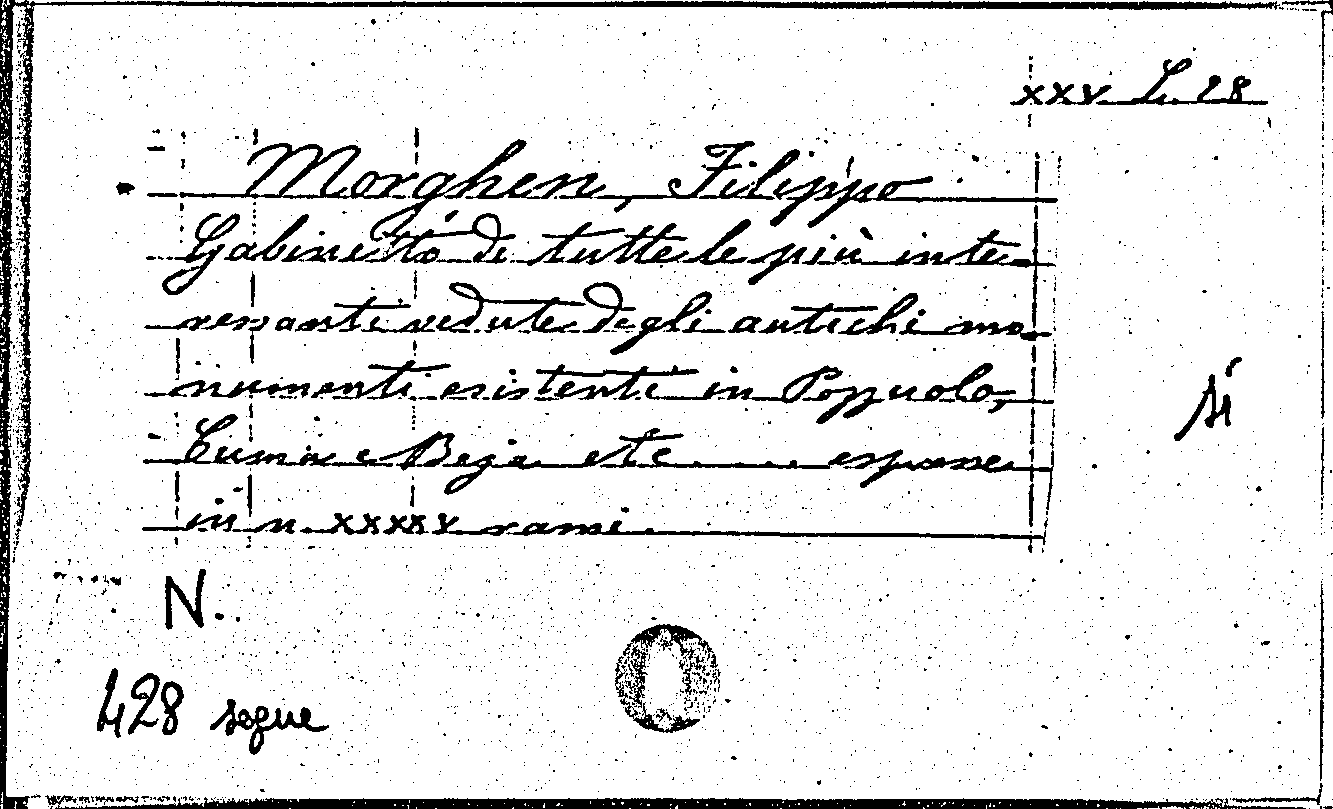 XXV. L. 28
Morghen, Filippo
Gabinetto di tutte le più inte-
ressanti vedute degli antichi mo-
numenti esistenti in Pozzuolo,
Cuma e Baja etc .... espresse
in n. XXXXV rami.
sì
N.
428 segue